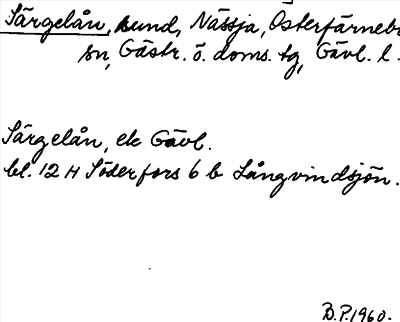 Särgelån, sund, Nässja, Österfärnebo
sn, Gästr. ö. doms. tg, Gävl. l.
Särgelån, ek Gävl.
bl. 12 H Söderfors 6 b Långvindsjön.
B.P. 1960.